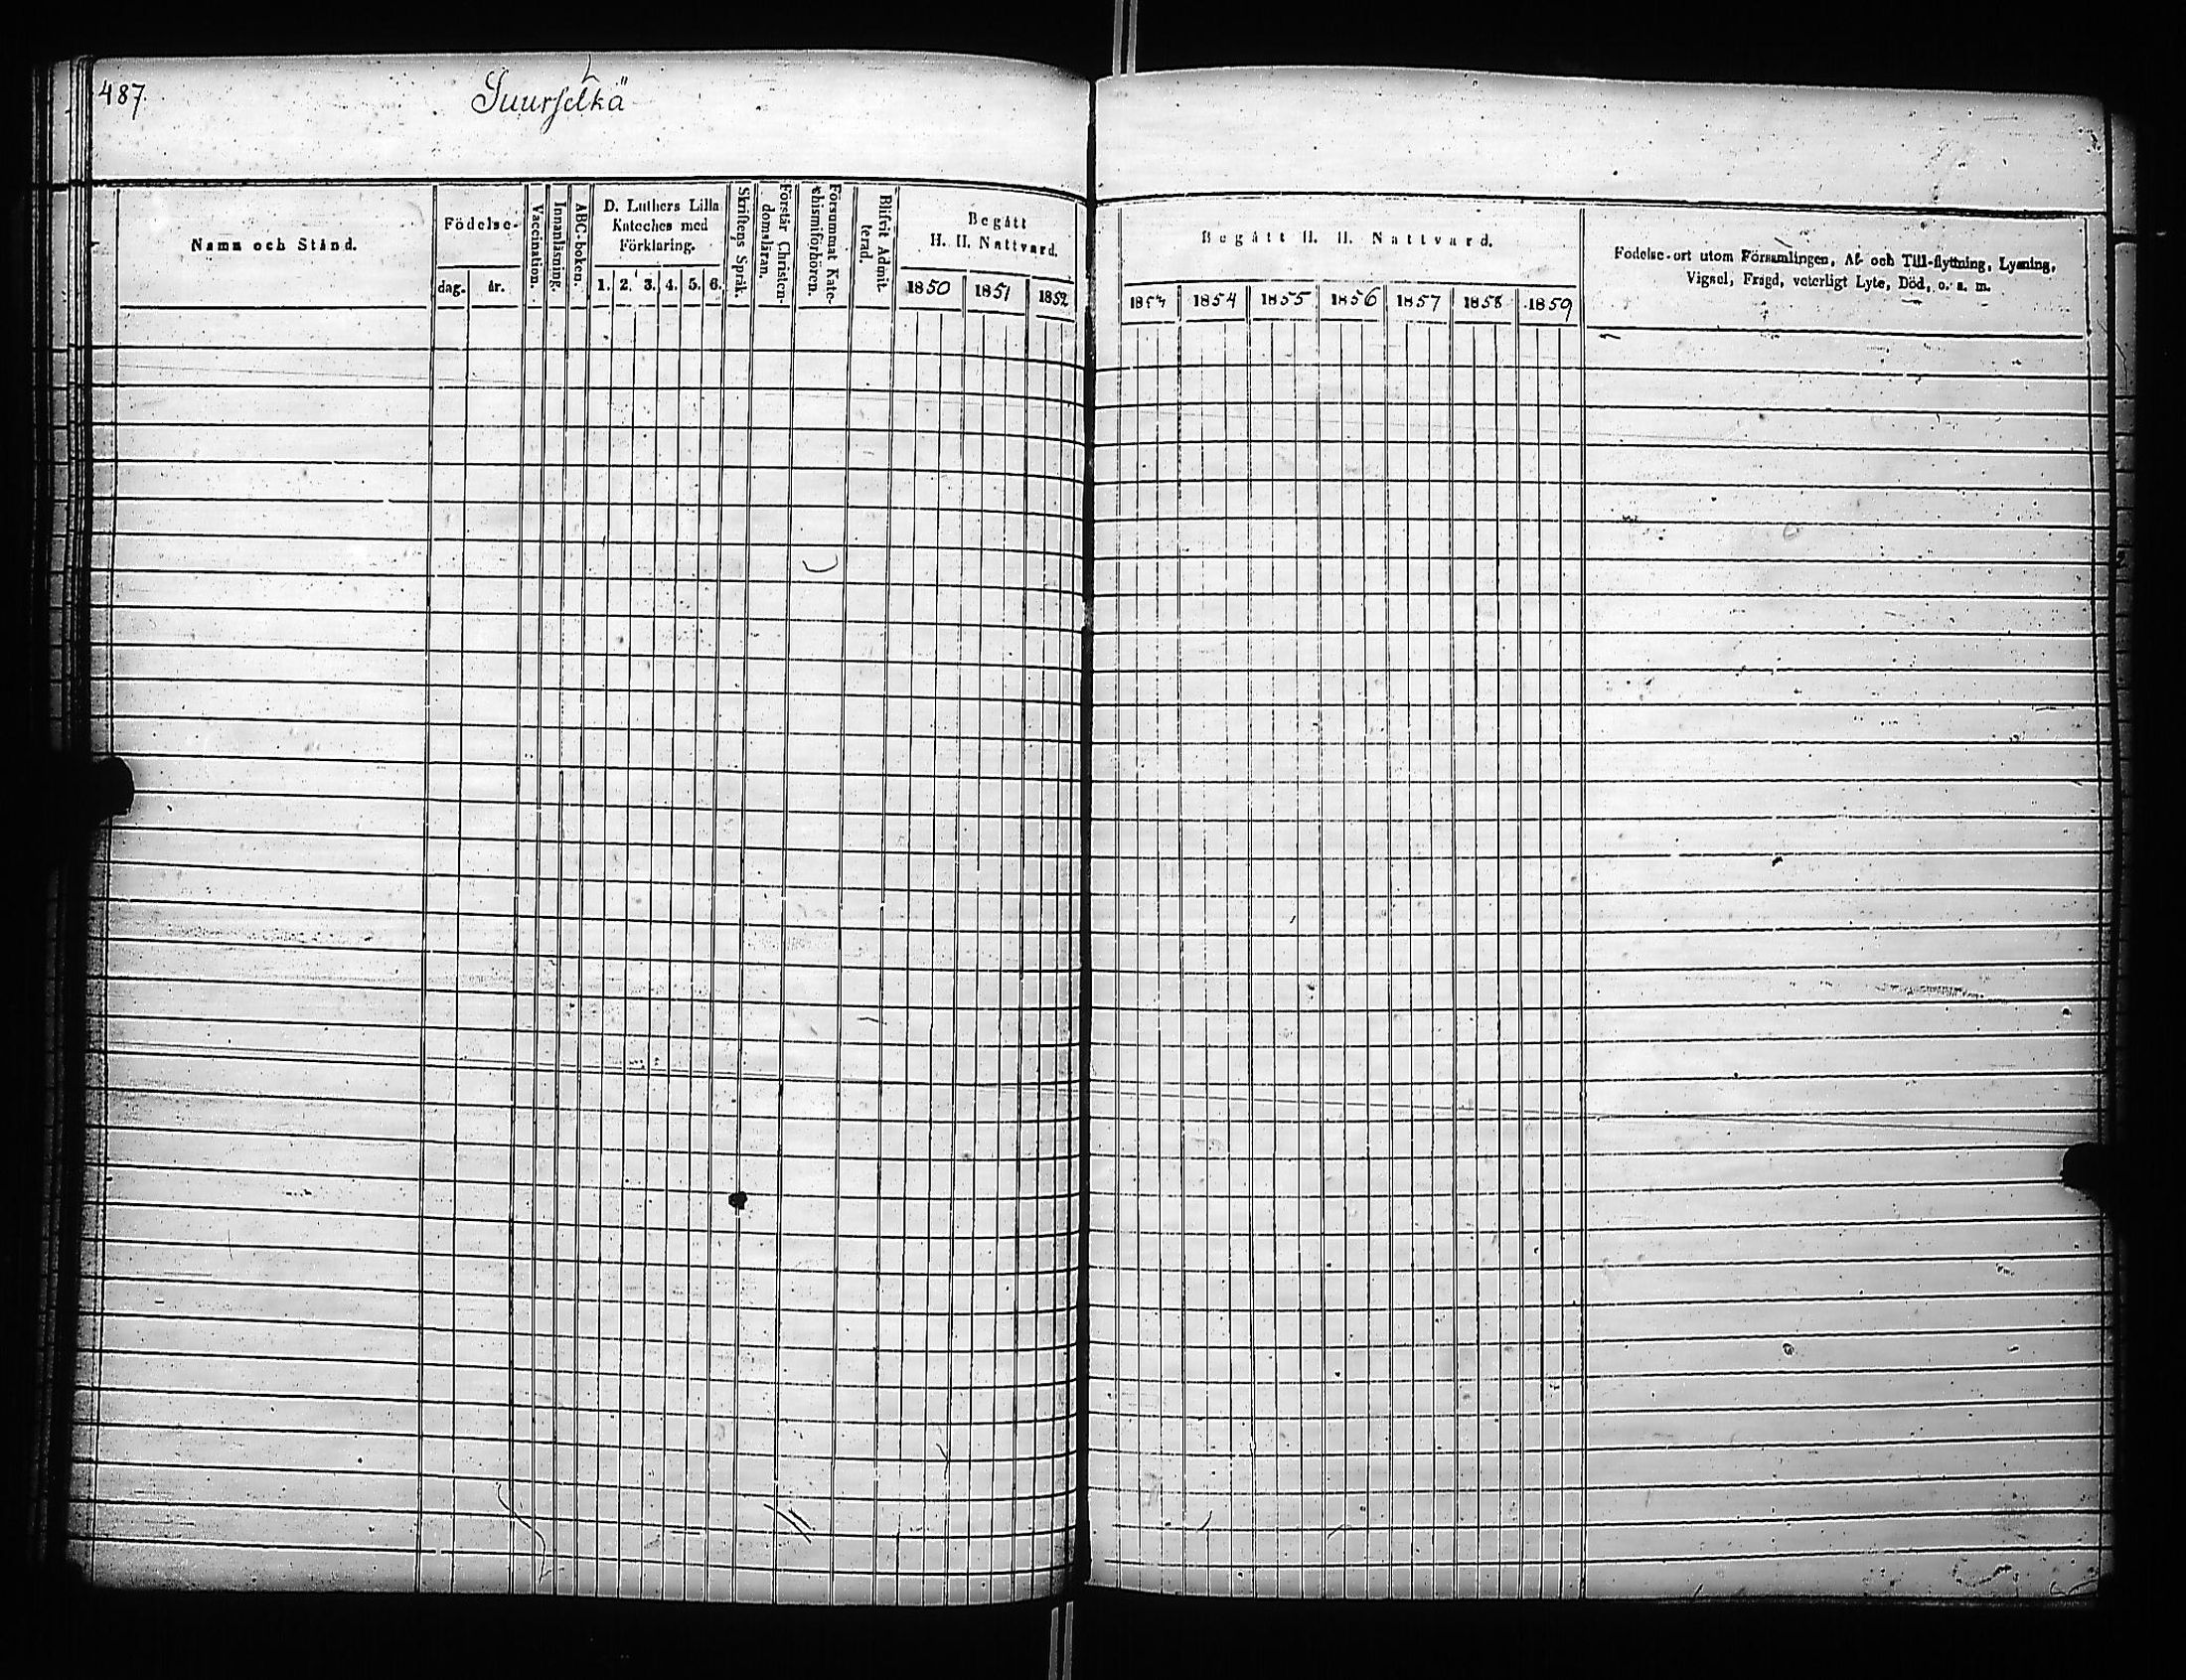 487.
Suurselkä
Namn och Stånd.
Födelse-
dag.
år.
Vaccination.
Innanläsning.
ABC-boken.
D. Luthers Lilla
Kateches med
Förklaring.
1. 2. 3. 4. 5. 6.
Skriftens Språk.
Förstår Christen-
domsläran.
Försummat Kate-
chismiförhören.
Blifvit Admit-
terad.
Begått
H. H. Nattvard.
1850 1851 1852
Begått H. H. Nattvard.
1853 1854 1855 1856 1857 1858 1859
Födelse-ort utom Församlingen, Af- och Till-flyttning, Lysning,
Vigsel, Frägd, veterligt Lyte, Död, o. s. m.